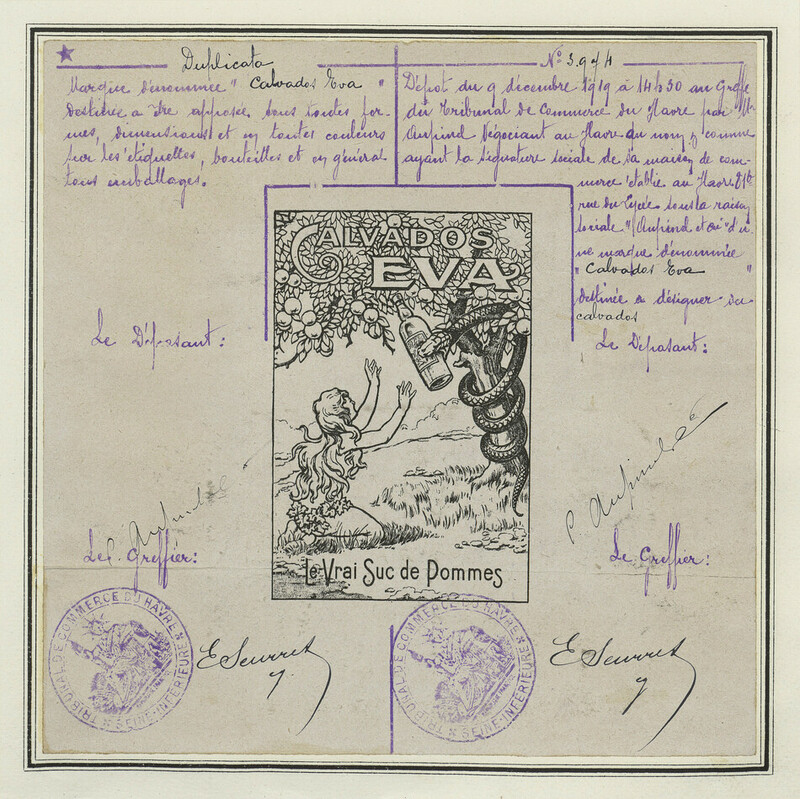 Duplicata
Marque dénommée " Calvados Eva "
destinée à être apposée sous toutes for-
mes, dimensions et en toutes couleurs
sur les étiquettes, bouteilles et en général
tous emballages.
Le Déposant :
Le Greffier :
TRIBUNAL DE COMMERCE DU HAVRE
SEINE-INFÉRIEURE
N° 3.974
Dépôt du 9 décembre 1919 à 14h30 au Greffe
du Tribunal de Commerce du Havre par
Aupind Négociant au Havre au nom et comme
ayant la signature sociale de sa maison de com-
merce établie au Havre
rue du Lycée sous la raison
sociale " Aupind et Cie " d'u-
ne marque dénommée
" Calvados Eva "
destinée à désigner du
calvados
Le Déposant :
Le Greffier :
TRIBUNAL DE COMMERCE DU HAVRE
SEINE-INFÉRIEURE
CALVADOS
EVA
Le Vrai Suc de Pommes